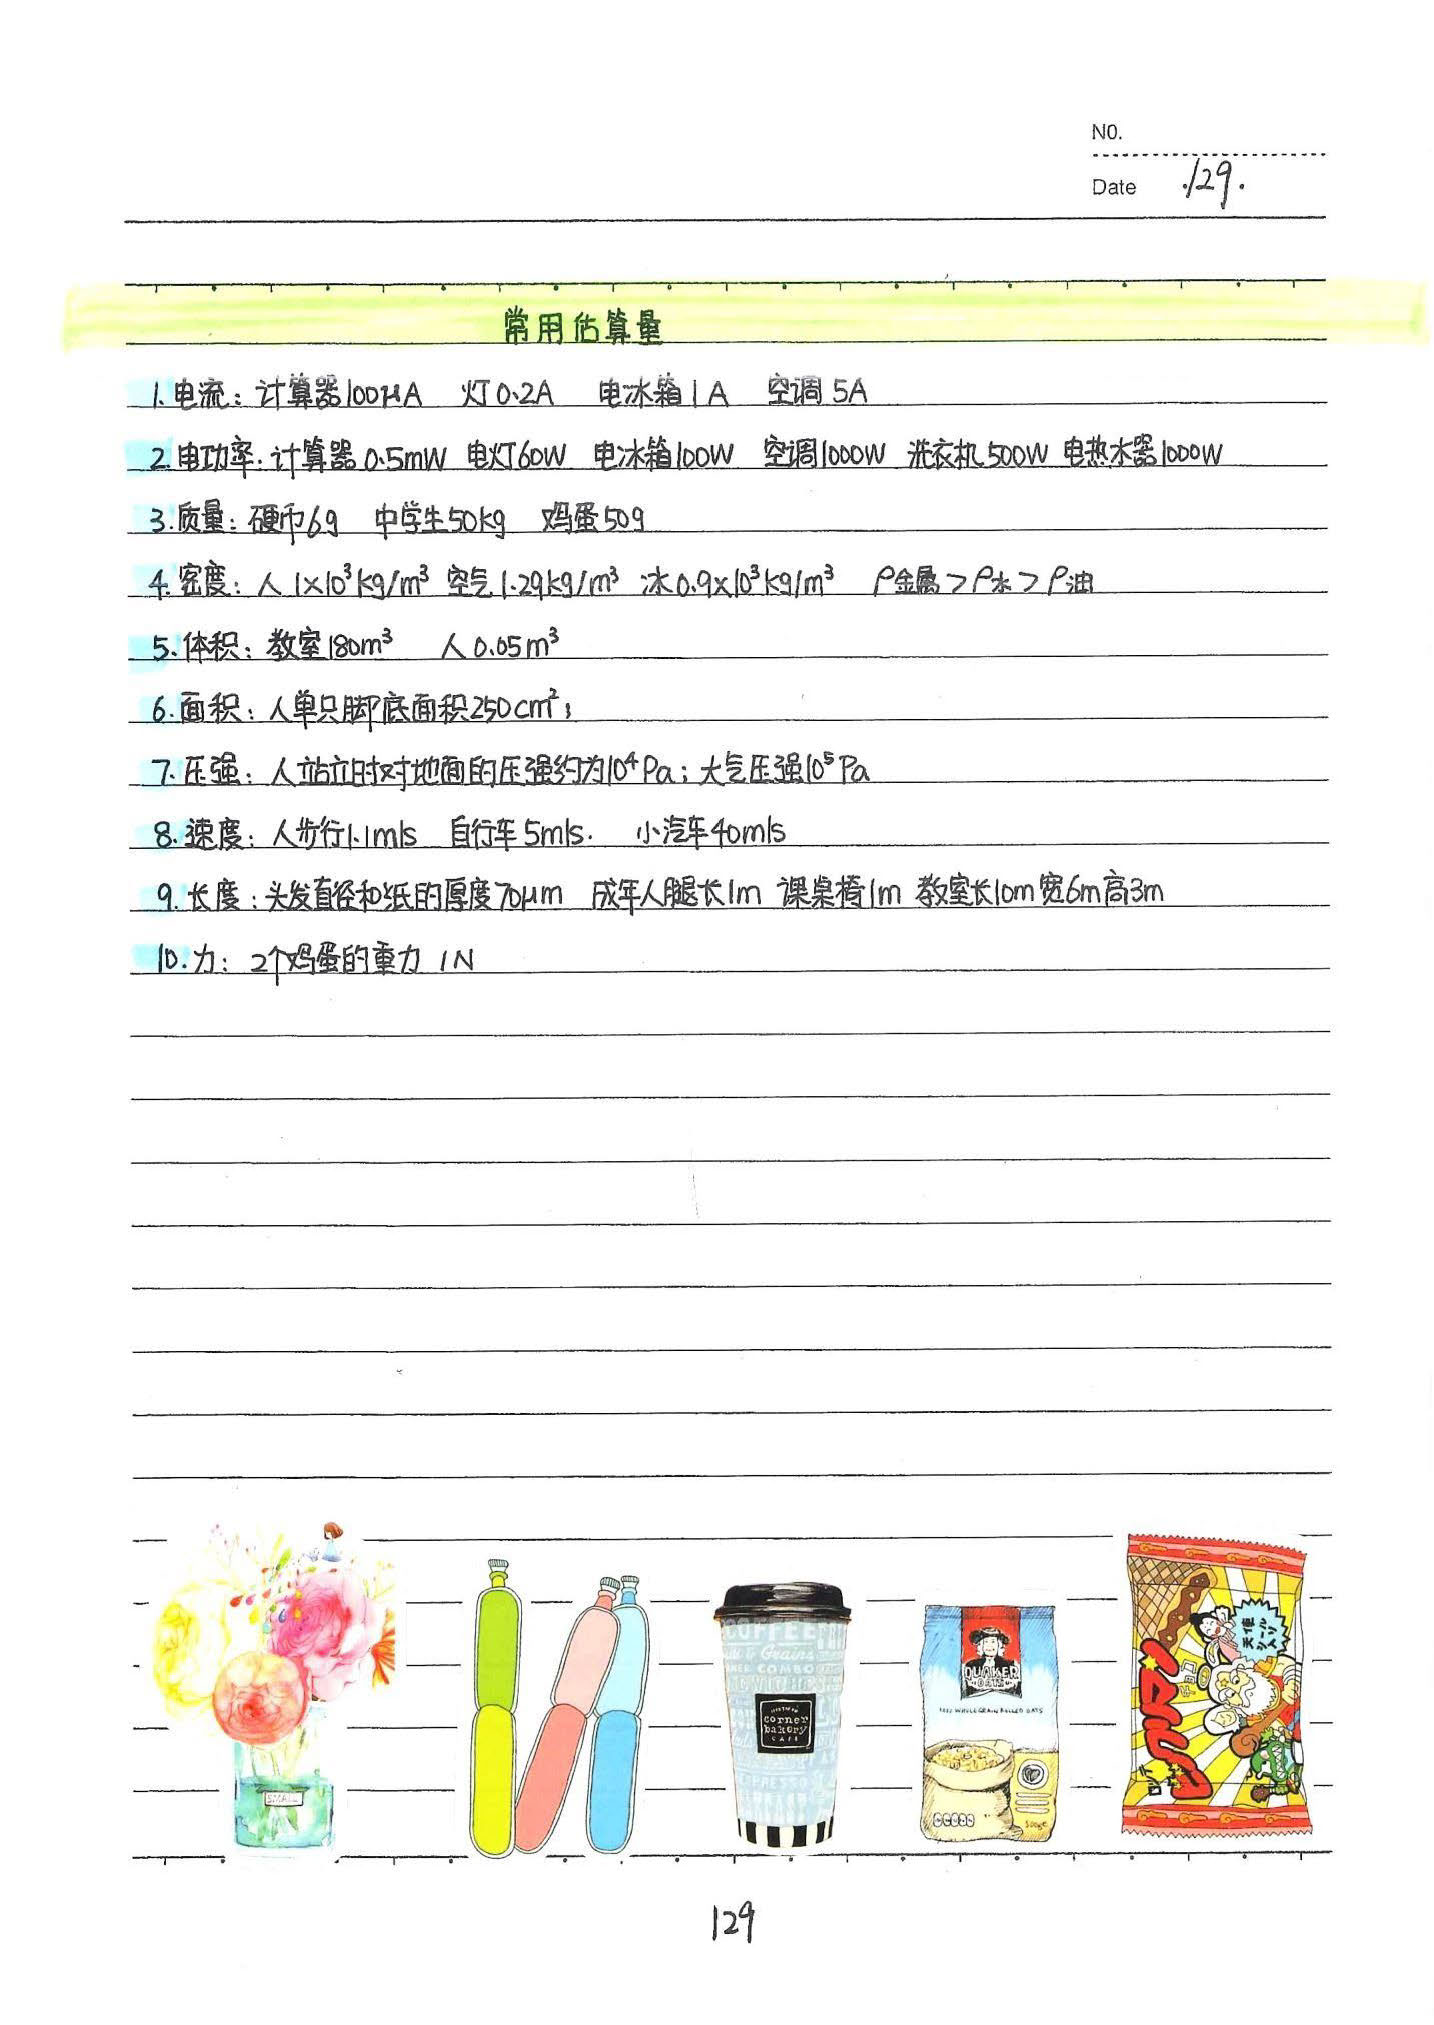 NO.
Date .129.
常用估算量
1.电流：计算器100μA 灯0.2A 电冰箱1A 空调5A
2.电功率：计算器0.5mW 电灯60W 电冰箱100W 空调1000W 洗衣机500W 电热水器1000W
3.质量：硬币6g 中学生50kg 鸡蛋50g
4.密度：人1×10³kg/m³ 空气1.29kg/m³ 冰0.9×10³kg/m³ ρ金属>ρ水>ρ油
5.体积：教室180m³ 人0.05m³
6.面积：人单只脚底面积250cm²;
7.压强：人站立时对地面的压强约为10⁴Pa；大气压强10⁵Pa
8.速度：人步行1.1m/s 自行车5m/s. 小汽车40m/s
9.长度：头发直径和纸的厚度70μm 成年人腿长1m 课桌椅1m 教室长10m宽6m高3m
10.力：2个鸡蛋的重力 1N
SMALL
COFFEE
corner
bakery
CAFE
QUAKER
OATS
100% WHOLE GRAIN ROLLED OATS
500g
129